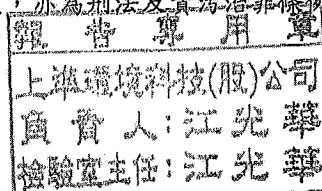 ，亦為刑法及貪污治罪條例
報告專用章
上準環境科技(股)公司
負責人：江光華
檢驗室主任：江光華